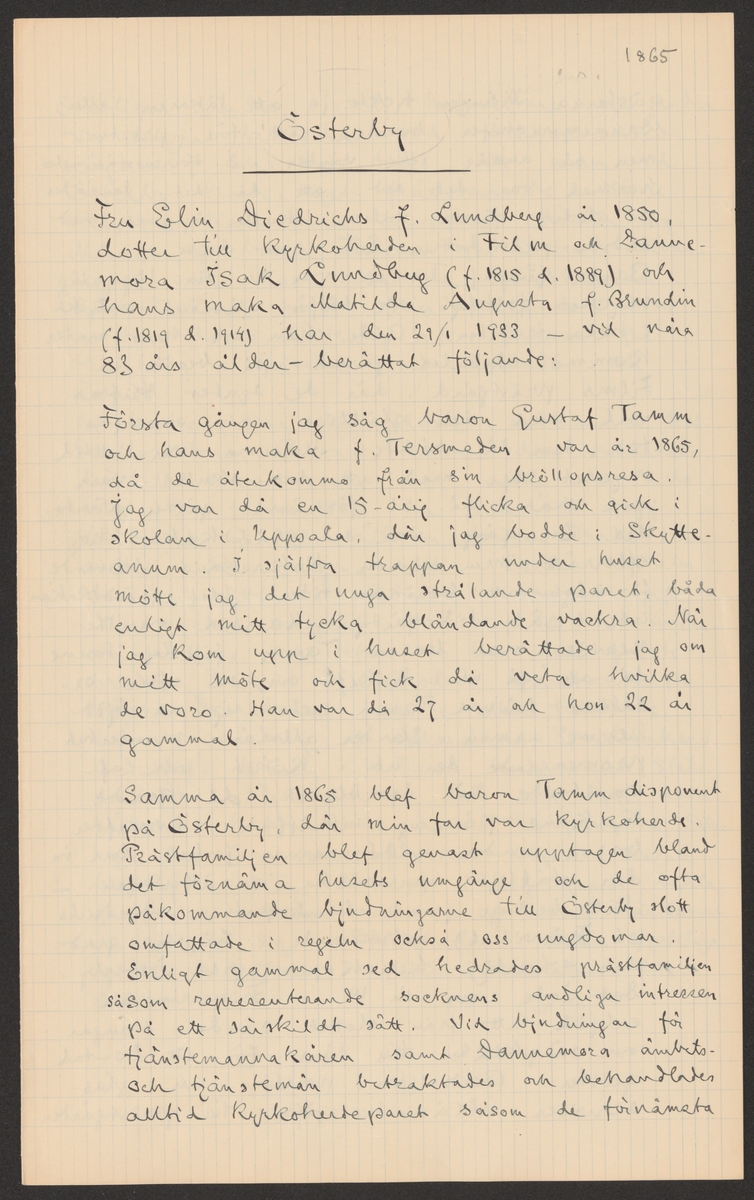 1865
Österby
Fru Elin Diedrichs f. Lundberg år 1850,
dotter till Kyrkoherden i Film och Danne-
mora Isak Lundberg (f. 1815 d. 1889) och
hans maka Matilda Augusta f. Brundin
(f. 1819 d. 1914) har den 29/1 1933 — vid nära
83 års ålder — berättat följande:
Första gången jag såg baron Gustaf Tamm
och hans maka f. Tersmeden var år 1865,
då de återkommo från sin bröllopsresa.
Jag var då en 15-årig flicka och gick i
skolan i Uppsala, där jag bodde i Skytte-
anum. I själfva trappan under huset
mötte jag det unga strålande paret, båda
enligt mitt tycka bländande vackra. När
jag kom upp i huset berättade jag om
mitt möte och fick då veta hvilka
de voro. Han var då 27 år och hon 22 år
gammal.
Samma år 1865 blef baron Tamm disponent
på Österby, där min far var Kyrkoherde.
Prästfamiljen blef genast upptagen bland
det förnäma husets umgänge och de ofta
påkommande bjudningarne till Österby slott
omfattade i regeln också oss ungdomar.
Enligt gammal sed hedrades prästfamiljen
såsom representerande socknens andliga intressen
på ett särskildt sätt. Vid bjudningar för
tjänstemannakåren samt Dannemora ämbets-
och tjänstemän betraktades och behandlades
alltid Kyrkoherdeparet såsom de förnämsta